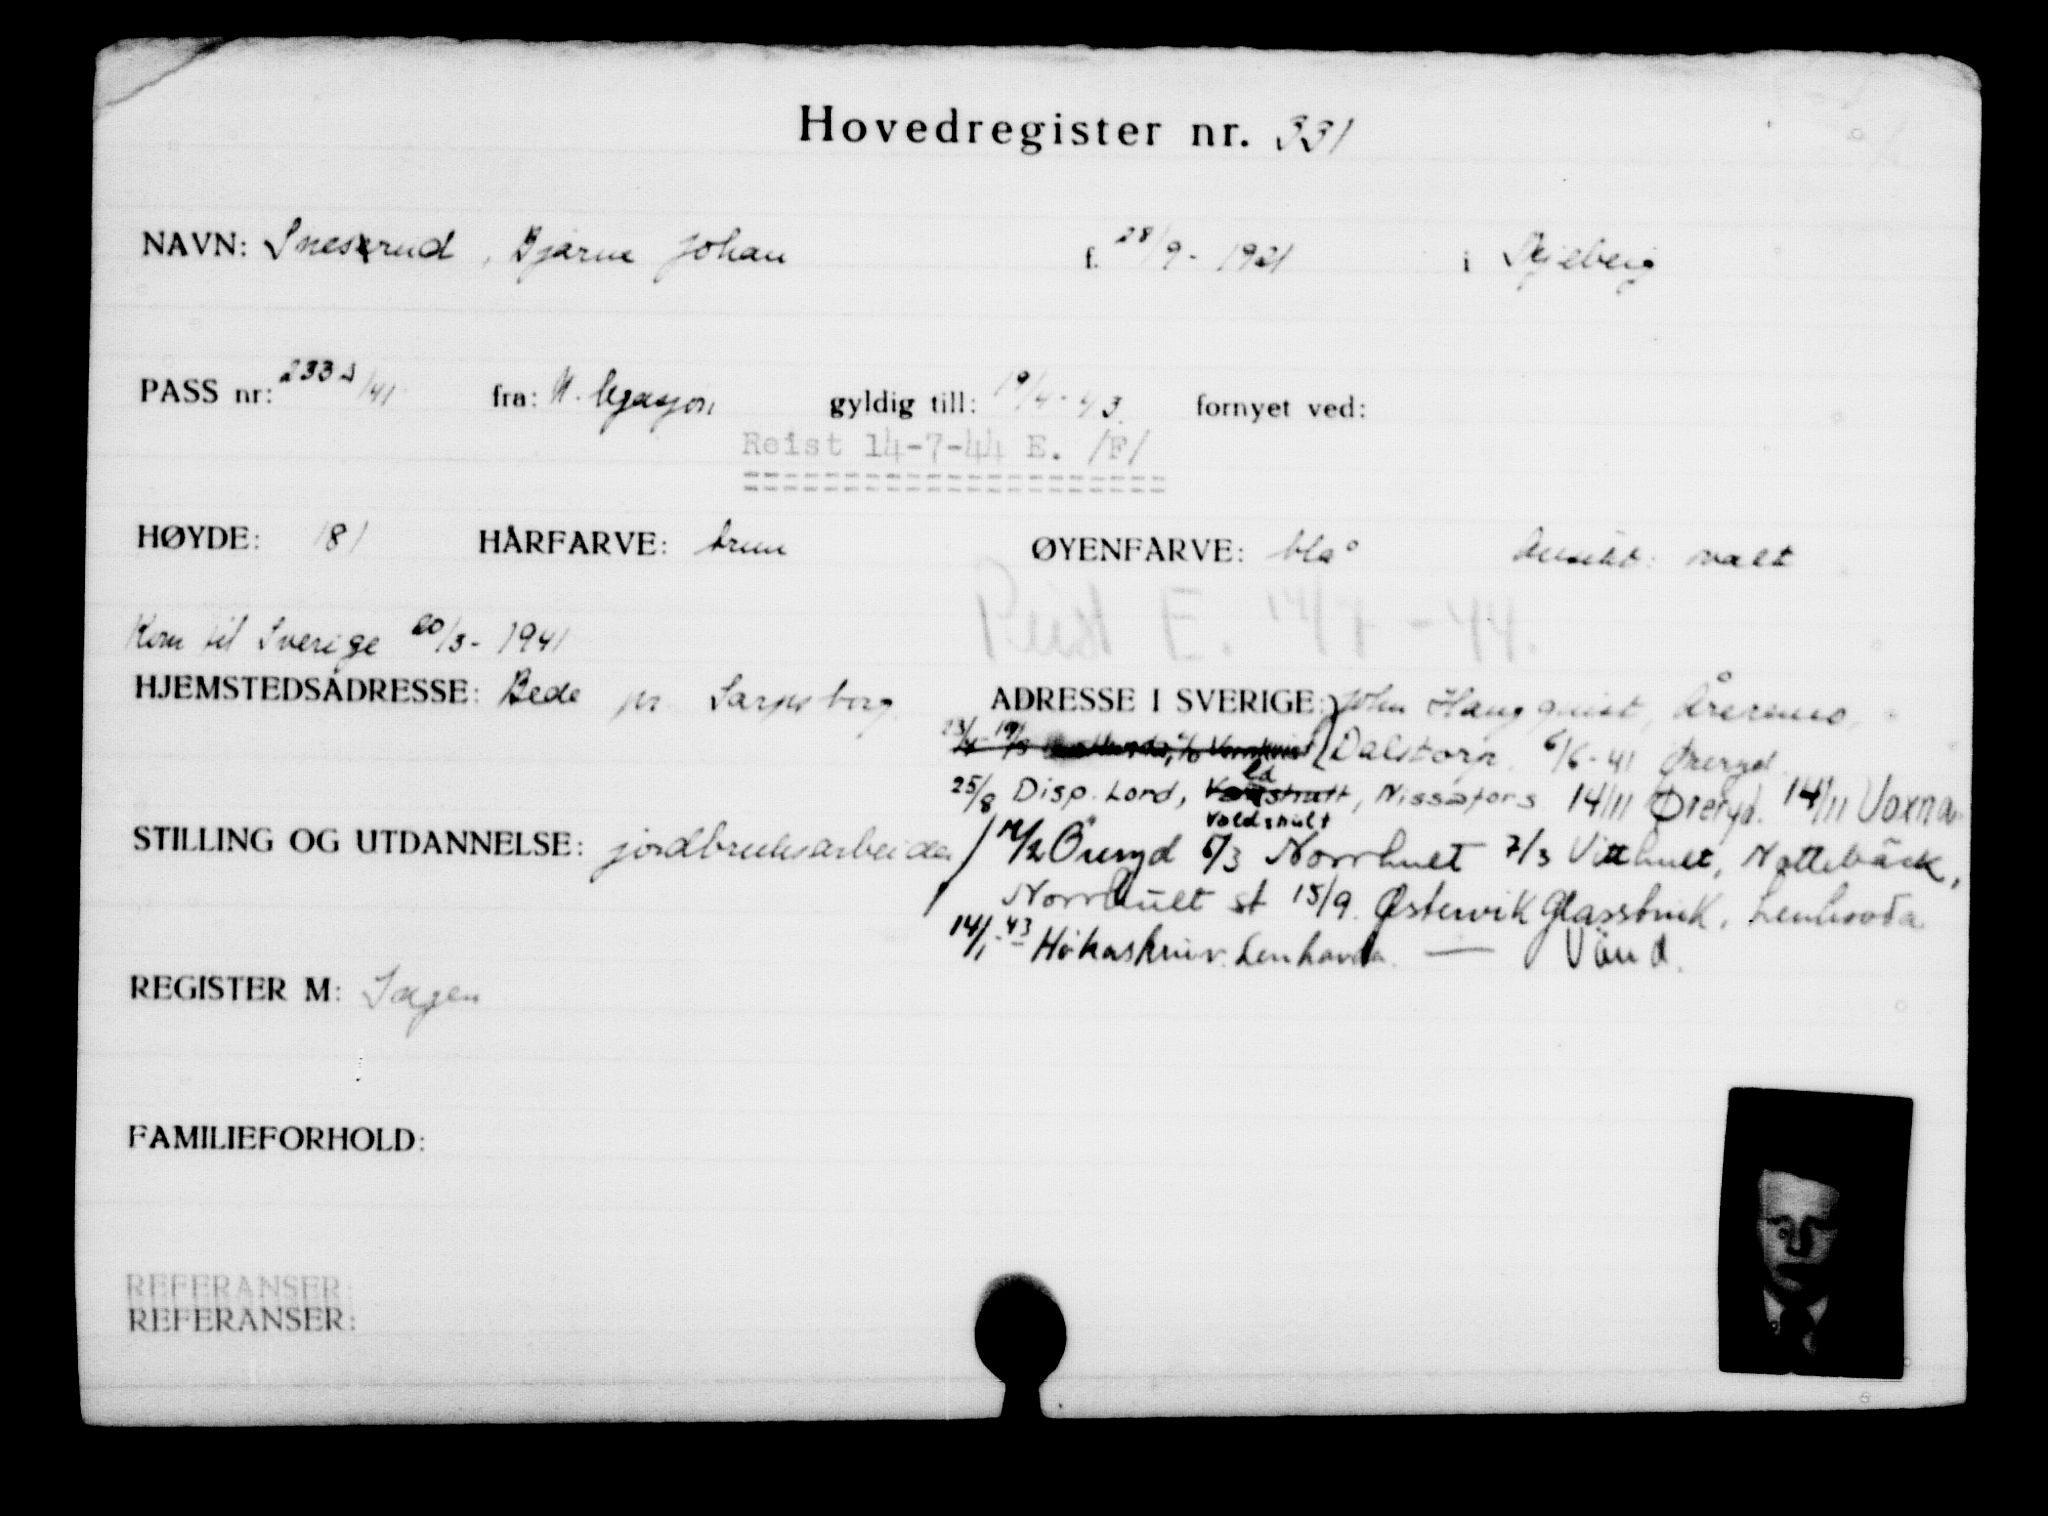 Hovedregister nr. 331
NAVN: Sneserud, Bjarne Johan f. 28/9 - 1921 i Skjeberg
PASS nr: 233 /41 fra: N. legasjon gyldig till: 19/4 - 43. fornyet ved:
Reist 14-7-44 E. /F/
HØYDE: 181 HÅRFARVE: brun ØYENFARVE: blå Ansikt: ovalt
Reist E. 14/7 - 44.
Kom til Sverige 20/3 - 1941
HJEMSTEDSADRESSE: Bede pr. Sarpsborg. ADRESSE I SVERIGE: John
Dalstorp. 6/6-41 Øreryd.
25/8 Disp. Lord, Nissafors 14/11 Øreryd. 14/11 Voxna
Voldshult
STILLING OG UTDANNELSE: jordbruksarbeider
14/2 Öreryd 6/3 Norrhult 7/3 Vitthult, Nottebäck,
Norrhult st 15/9. Østervik Glassbruk, Lenhovda
14/1-43 Hökaskruv. Lenhovda. — Vänd.
REGISTER M: Sagen
FAMILIEFORHOLD:
REFERANSER:
REFERANSER: